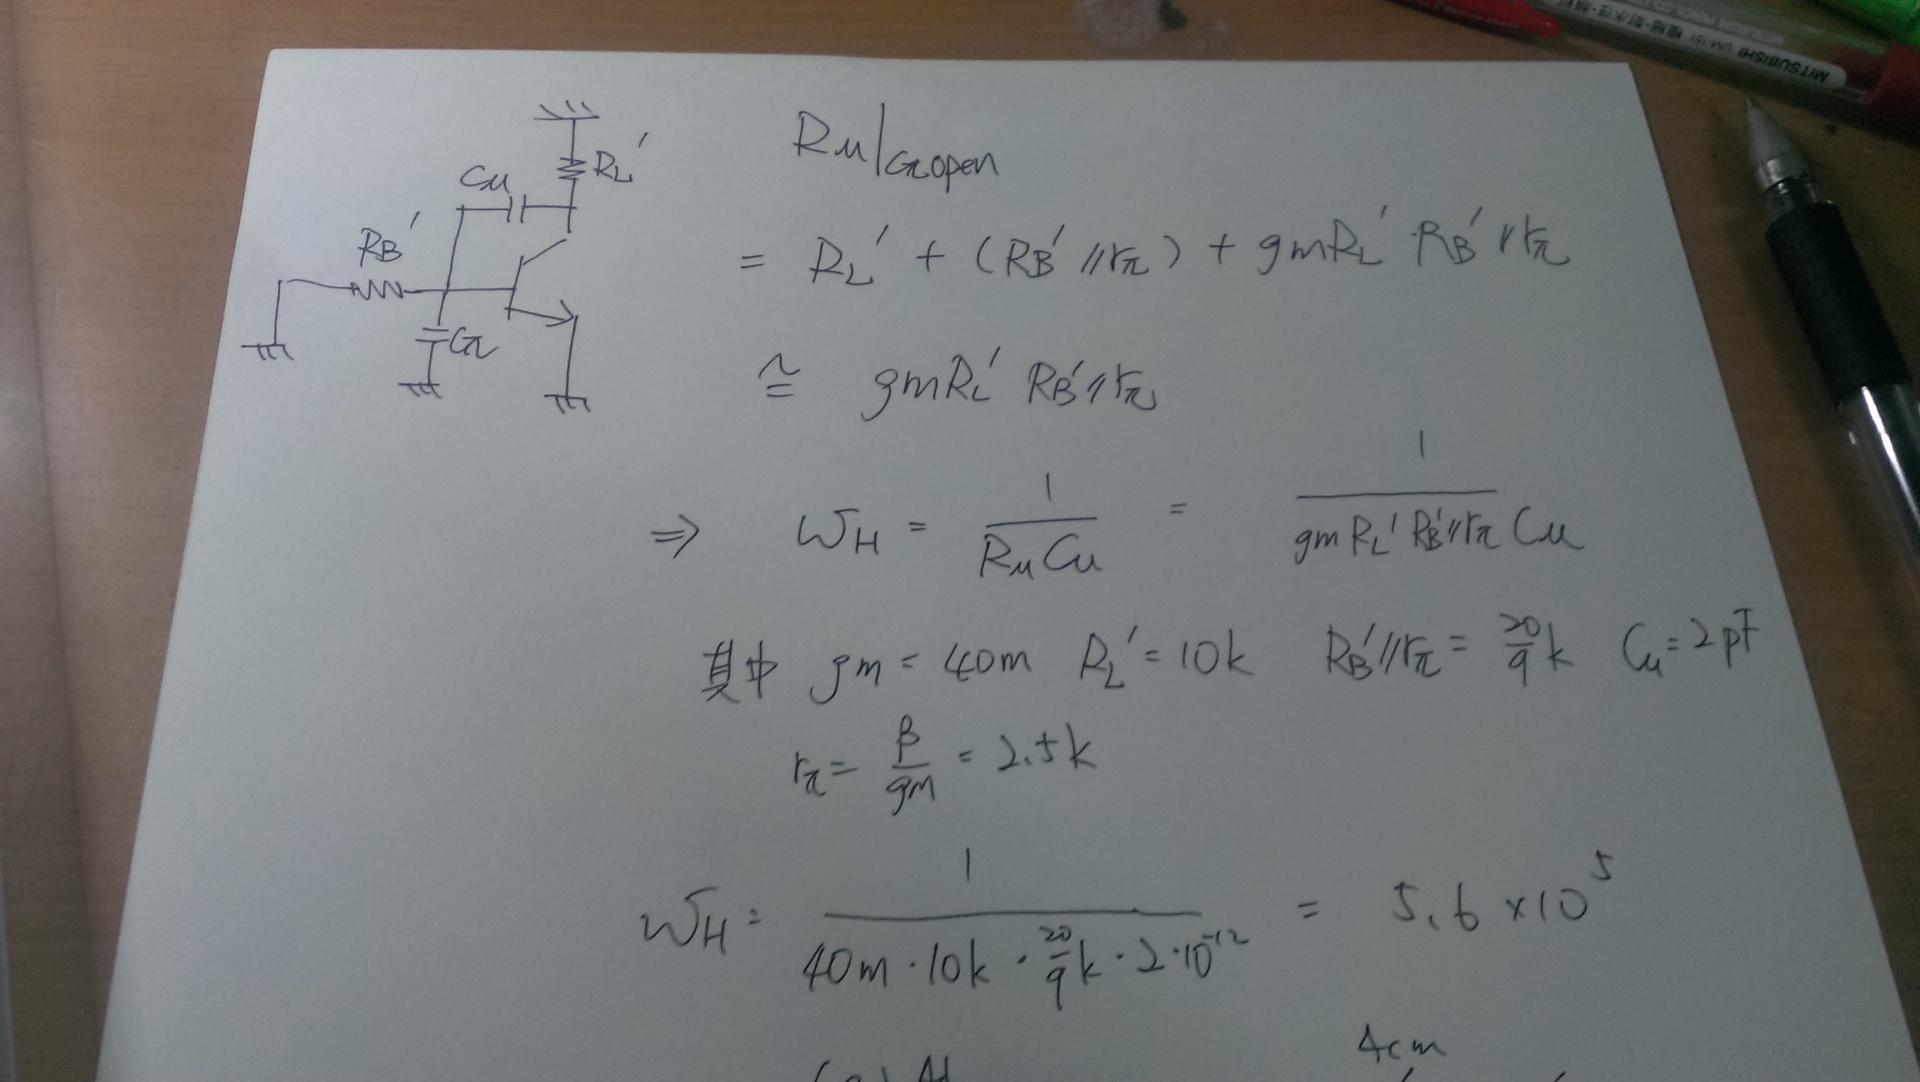 MITSUBISHI
Rμ|Cπopen
Cμ
RL'
RB'
Cπ
= RL' + (RB' // rπ) + gmRL' · RB' // rπ
≅ gmRL' RB' // rπ
⇒ ωH = 1 / RμCμ = 1 / gm RL' RB' // rπ Cμ
其中 gm = 40m RL' = 10k RB' // rπ = 20/9 k Cμ = 2pF
rπ = β/gm = 2.5k
ωH = 1 / 40m · 10k · 20/9 k · 2 · 10^-12 = 5.6 × 10^5
4cm